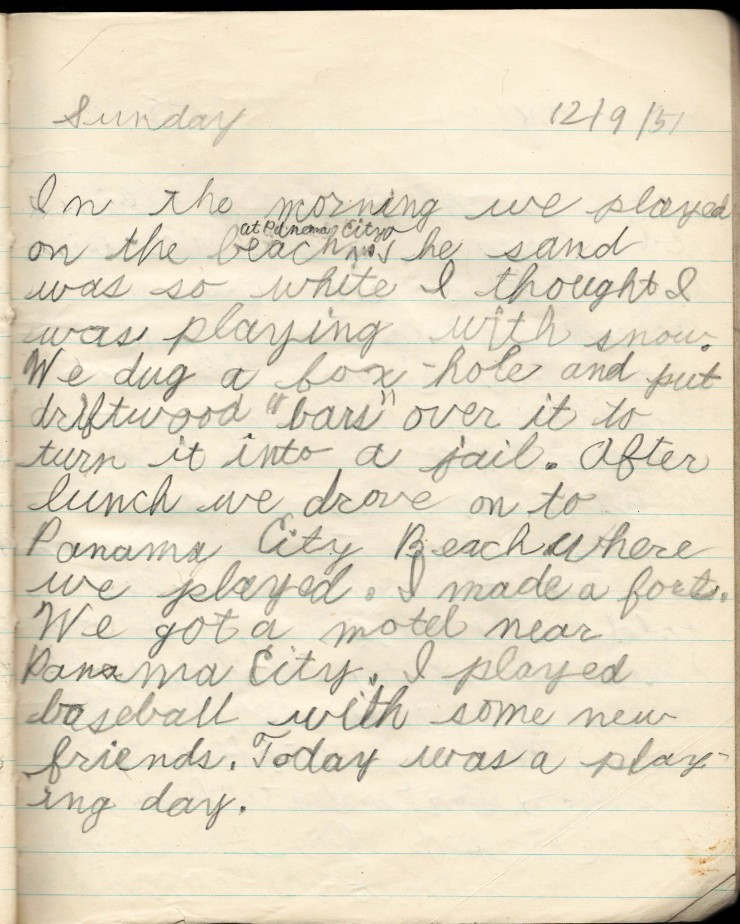 Sunday 12/9/51
In the morning we played
at Panama City
on the beach. The sand
was so white I thought I
was playing with snow.
We dug a fox-hole and put
driftwood "bars" over it to
turn it into a jail. After
lunch we drove on to
Panama City Beach where
we played. I made a fort.
We got a motel near
Panama City. I played
baseball with some new
friends. Today was a play-
ing day.